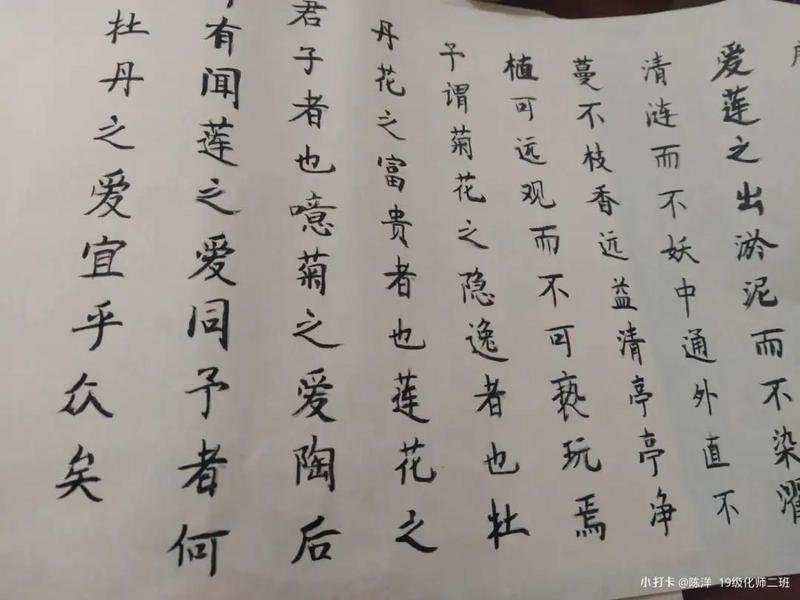 爱莲之出淤泥而不染濯
清涟而不妖中通外直不
蔓不枝香远益清亭亭净
植可远观而不可亵玩焉
予谓菊花之隐逸者也杜
丹花之富贵者也莲花之
君子者也噫菊之爱陶后
有闻莲之爱同予者何
杜丹之爱宜乎众矣
小打卡 @陈洋 19级化师二班